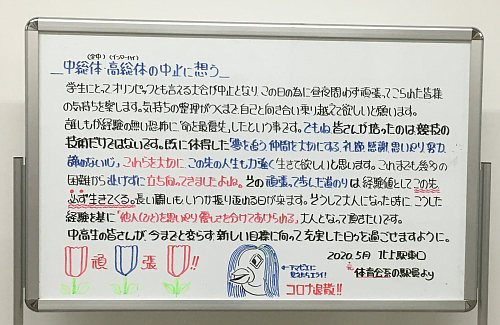 (全中) (インターハイ)
中総体 高総体の中止に想う
学生にとってオリンピックとも言える大会が中止となり、この日の為に昼夜問わず頑張ってこられた皆様
の気持ちを察します。気持ちの整理がつくまで自己と向き合い乗り越えて欲しいと願います。
誰しもが経験の無い恐怖に「命を最優先」したという事です。でもね皆さんが培ったのは競技の
技術だけではないです。既に体得した「夢を追う 仲間を大切にする 礼節 感謝 思いやり 努力
諦めない心」これらを大切に この先の人生も力強く生きて欲しいと思います。これまでも幾多の
困難から逃げずに立ち向ってきましたよね。その頑張って歩んだ道のりは経験値としてこの先
必ず生きてくる。長い闘いもいつか振り返れる日が来ます。そうして大人になった時に、こうした
経験を基に「他人(ひと)を思いやり優しさを分けてあげられる」大人となって導きたいです。
中高生の皆さんが、今までと変らず新しい目標に向って充実した日々を過ごせますように。
頑張!!
←アマビエに
見えたらエライ!
コロナ退散!!
2020.5月 北上駅東口
体育会系の駅員より